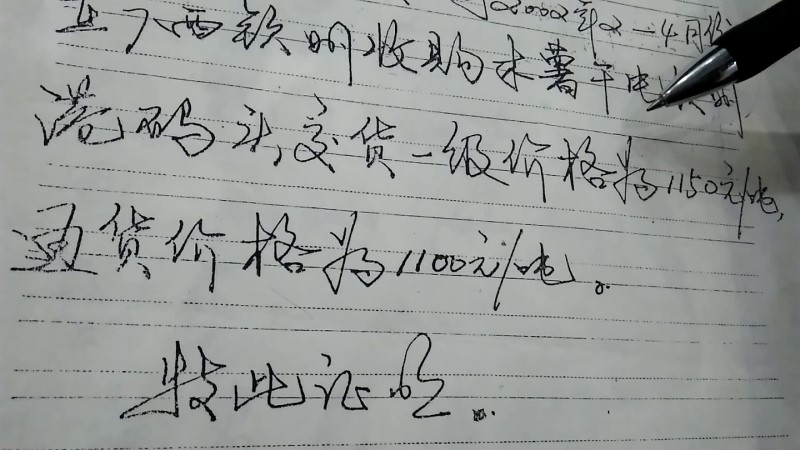 于2002年2-4月份
广西钦州收购木薯干由钦州
港码头交货一级价格为1150元/吨,
通货价格为1100元/吨。
特此证明。